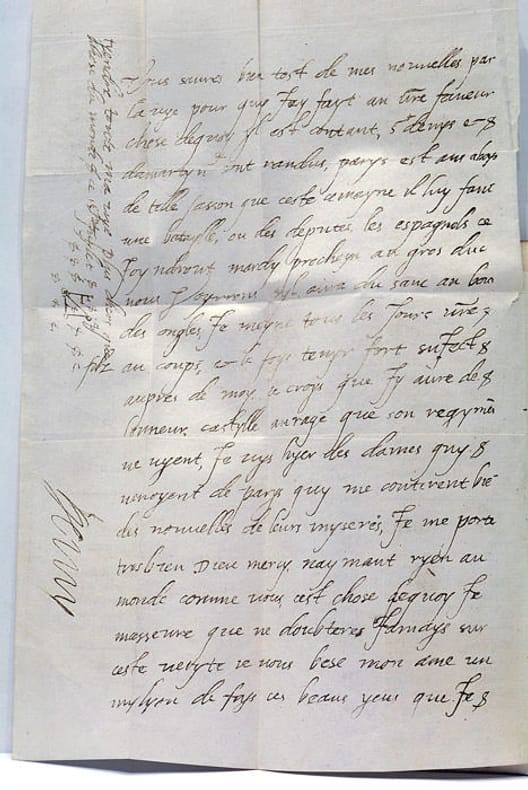 Vous saures bien tost de mes nouvelles par
la vye pour quy Jay fayt an vre faveur
chose dequoy yl est contant, st denys et
damartyn ont randus, parys est aus aboys
de telle fasson que ceste semayne il luy faut
une batayle, ou des deputes, les espagnols ce
Joyndront mardy procheyn au gros duc
nous y verrons syl aura du sanc au bout
des ongles, Je meyne tous les Jours vre
fyls au coups, et le foys tenyr fort suJect
aupres de moy, Je croys que Jy aure de
lonneur, castylle anrage que son regymẽt
ne vyent, Je vys hyer des dames quy
venoyent de parys quy me contirent biẽ
des nouvelles de leurs myseres, Je me porte
tres bien Dieu mercy, naymant ryen au
monde comme vous, cest chose dequoy Je
masseure que ne doubteres Jamays sur
ceste veryte Je vous bese mon ame un
mylyon de foys ces beaus yeus que Je